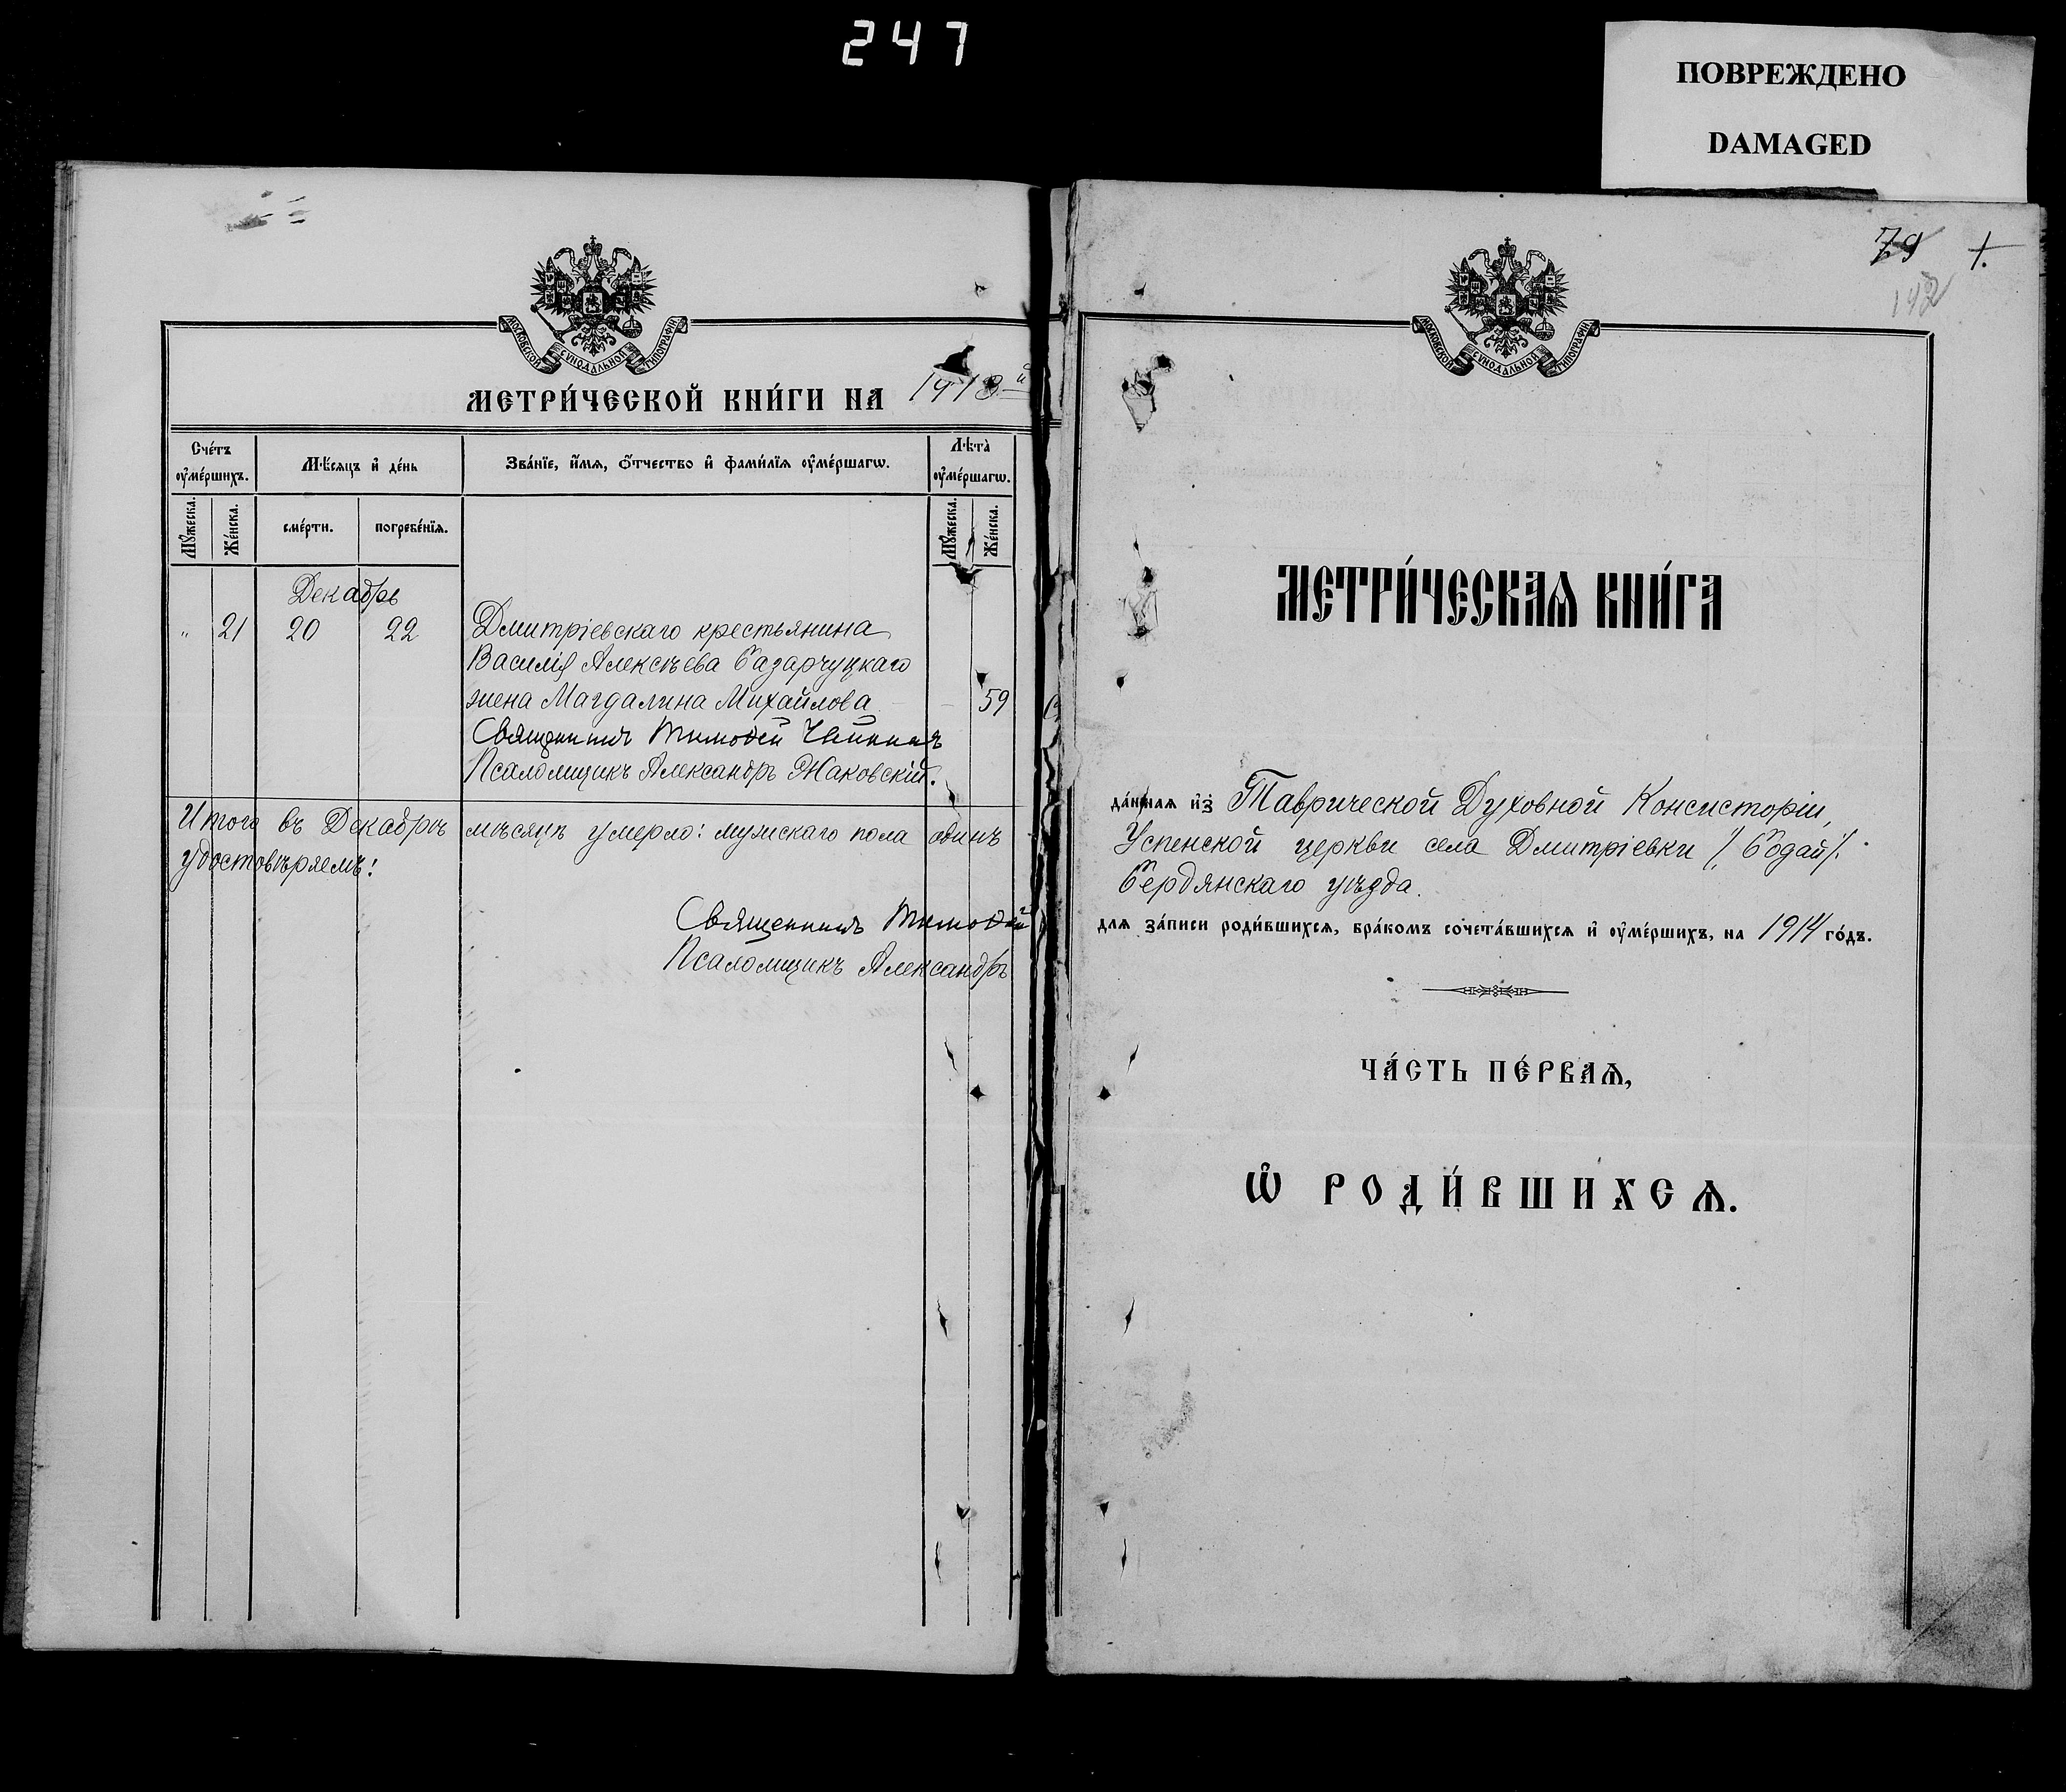 247
ПОВРЕЖДЕНО
DAMAGED
МОСКОВСКОЙ СѴНОДАЛЬНОЙ ТИПОГРАФІИ
МЕТРИ́ЧЕСКОЙ КНИ́ГИ НА 1913й
Сче́тъ ᲂу҆ме́ршихъ.
Мѣ́сяцъ и҆ де́нь
Зва́нїе, и҆́мѧ, ѻ҆́тчество и҆ фами́лїѧ ᲂу҆ме́ршагѡ.
Лѣта̀ ᲂу҆ме́ршагѡ.
Мꙋ́жеска.
Же́нска.
сме́рти.
погребе́нїѧ.
Мꙋ́жеска.
Же́нска.
Декабрь
" 21 20 22 Дмитріевскаго крестьянина
Василія Алексѣева Базарчуцкаго
жена Магдалина Михайлова - 59
Священникъ Тимоѳей
Псаломщикъ Александръ Жаковскій.
Итого въ Декабрѣ мѣсяцѣ умерло: мужскаго пола одинъ
удостовѣряемъ:
Священникъ Тимоѳей
Псаломщикъ Александръ
79 1.
142
МОСКОВСКОЙ СѴНОДАЛЬНОЙ ТИПОГРАФІИ
МЕТРИ́ЧЕСКАѦ КНИ́ГА
да́ннаѧ и҆з̾ Таврической Духовной Консисторіи,
Успенской церкви села Дмитріевки /: Бодай/:
Бердянскаго уѣзда.
длѧ за́писи роди́вшихсѧ, бра́комъ сочета́вшихсѧ и҆ ᲂу҆ме́ршихъ, на 1914 го́дъ.
ЧА́СТЬ ПЕ́РВАѦ,
Ѡ҆ РОДИ́ВШИХСѦ.